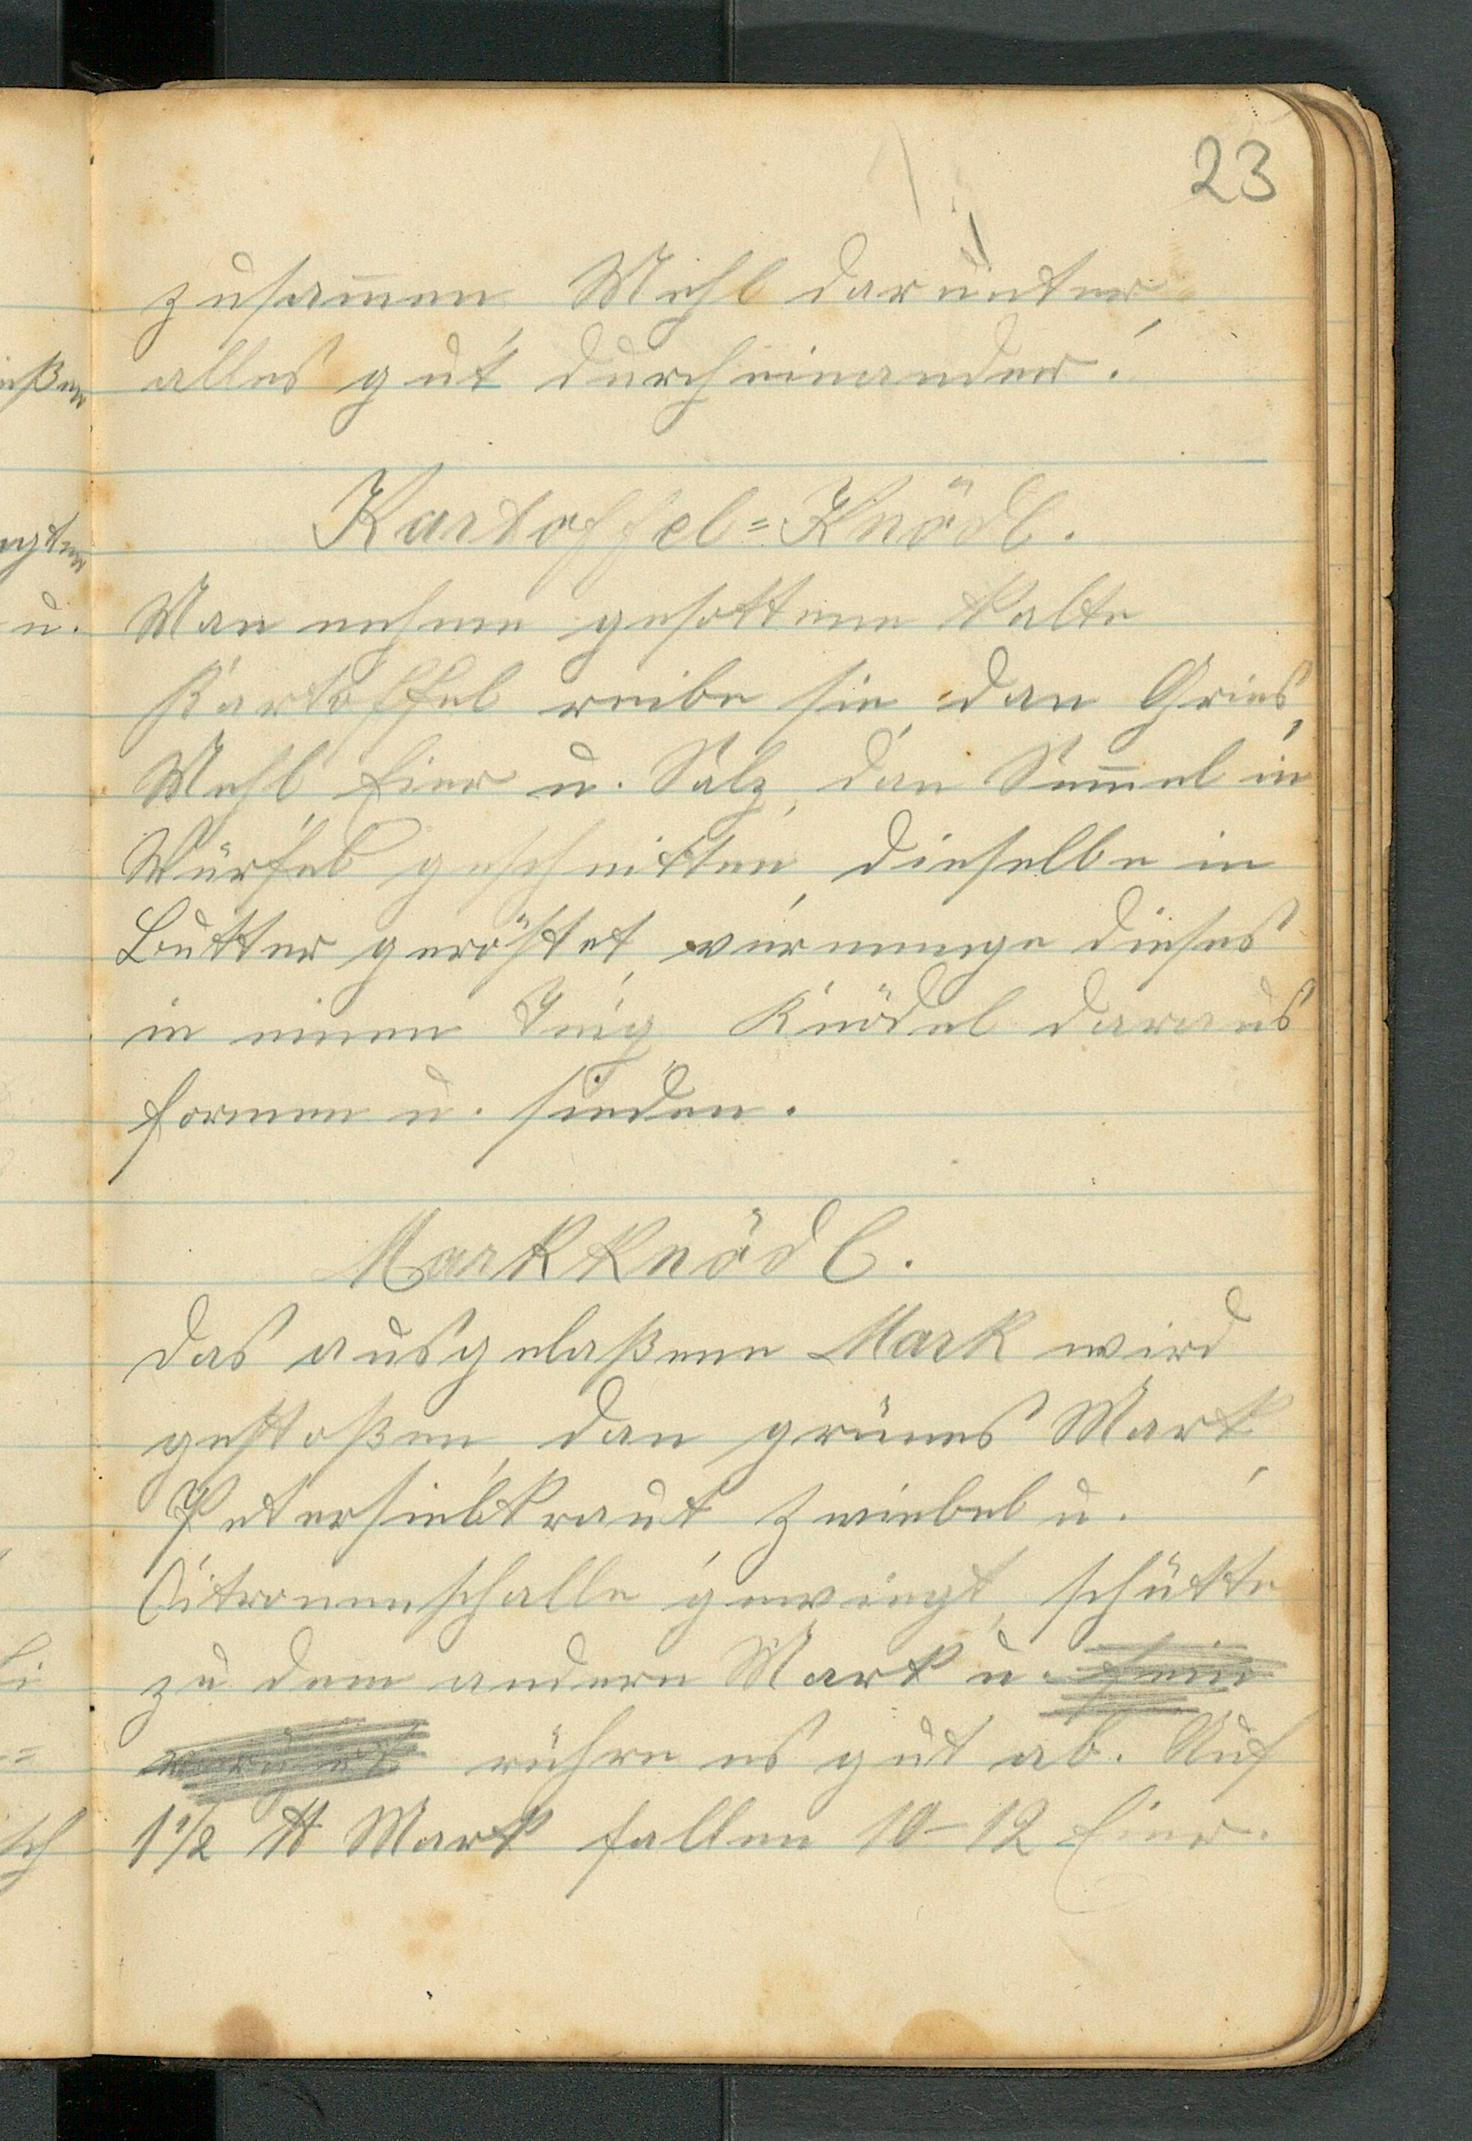 23
zusam̄en Mehl darunter
alles gut durcheinander.
Kartoffel=Knödl.
Man nehme gesottene kalte
Kartoffel reibe sie, dan Gries,
Mehl, Eier u. Salz, dan Sem̄el in
Würfel geschnitten, dieselbe in
Butter geröstet, vermenge dieses
in einen Teig Knödel daraus
formen u. sieden.
Markknödl.
Das ausgelaßene Mark wird
gestoßen, dan grünes Mark,
Petersielkraut, Zwiebel u.
Citronenschalle gewiegt, schütte
zu dem andern Mark u. fein
rühre es gut ab. Auf
1 1/2 ℔ Mark fallen 10–12 Eier.
ngten
u.